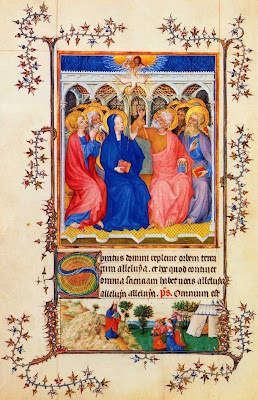 Spiritus domini repleuit orbem terra
rum alleluya. et hoc quod continet
omnia scientiam habet uocis alleluya
alleluya alleluya. ps. Omnium est